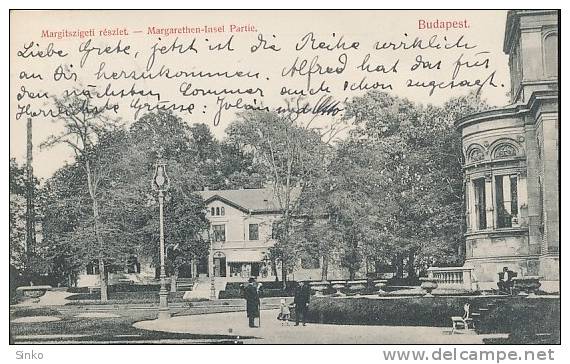 Margitszigeti részlet. — Margarethen-Insel Partie.
Budapest.
Liebe Grete, jetzt ist die Reihe wirklich
an Dir herzukommen. Alfred hat das für
den nächsten Sommer auch schon zugesagt.
Herzliche Grüsse:
Sinko
www.delcampe.net